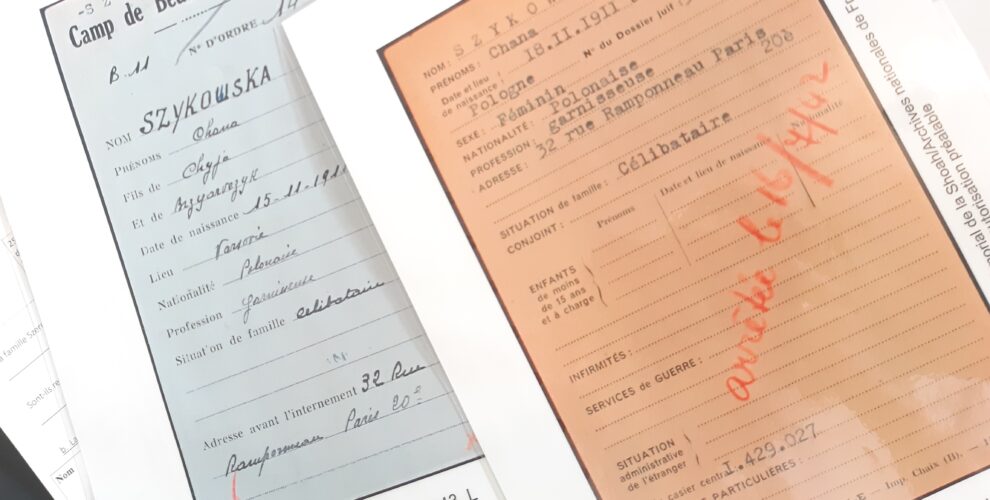 Camp de
N° D'ORDRE 14
B. 11
NOM SZYKOWSKA
PRÉNOMS Chana
Fils de Chyja
Et de
Date de naissance 15-11-1911
Lieu Varsovie
Nationalité Polonaise
Profession garnisseuse
Situation de famille célibataire
Adresse avant l'internement 32 Rue
Ramponneau Paris 20e
NOM : SZYKO
PRÉNOMS : Chana
Date et lieu de naissance : 18.II.1911
Pologne
N° du Dossier juif :
SEXE : Féminin
NATIONALITÉ : Polonaise
PROFESSION : garnisseuse
ADRESSE : 32 rue Ramponneau Paris 20è
SITUATION de famille : Célibataire
CONJOINT :
Prénoms
Date et lieu de naissance
Nationalité
ENFANTS
de moins
de 15 ans
et à charge
arrêtée le 16/7/42
INFIRMITÉS :
SERVICES DE GUERRE :
SITUATION
administrative
de l'étranger
casier central I.429.027
PARTICULIÈRES :
Imp. Chaix (B).
de la Shoah/Archives nationales de
préalable
a famille
Sont-ils
Nom